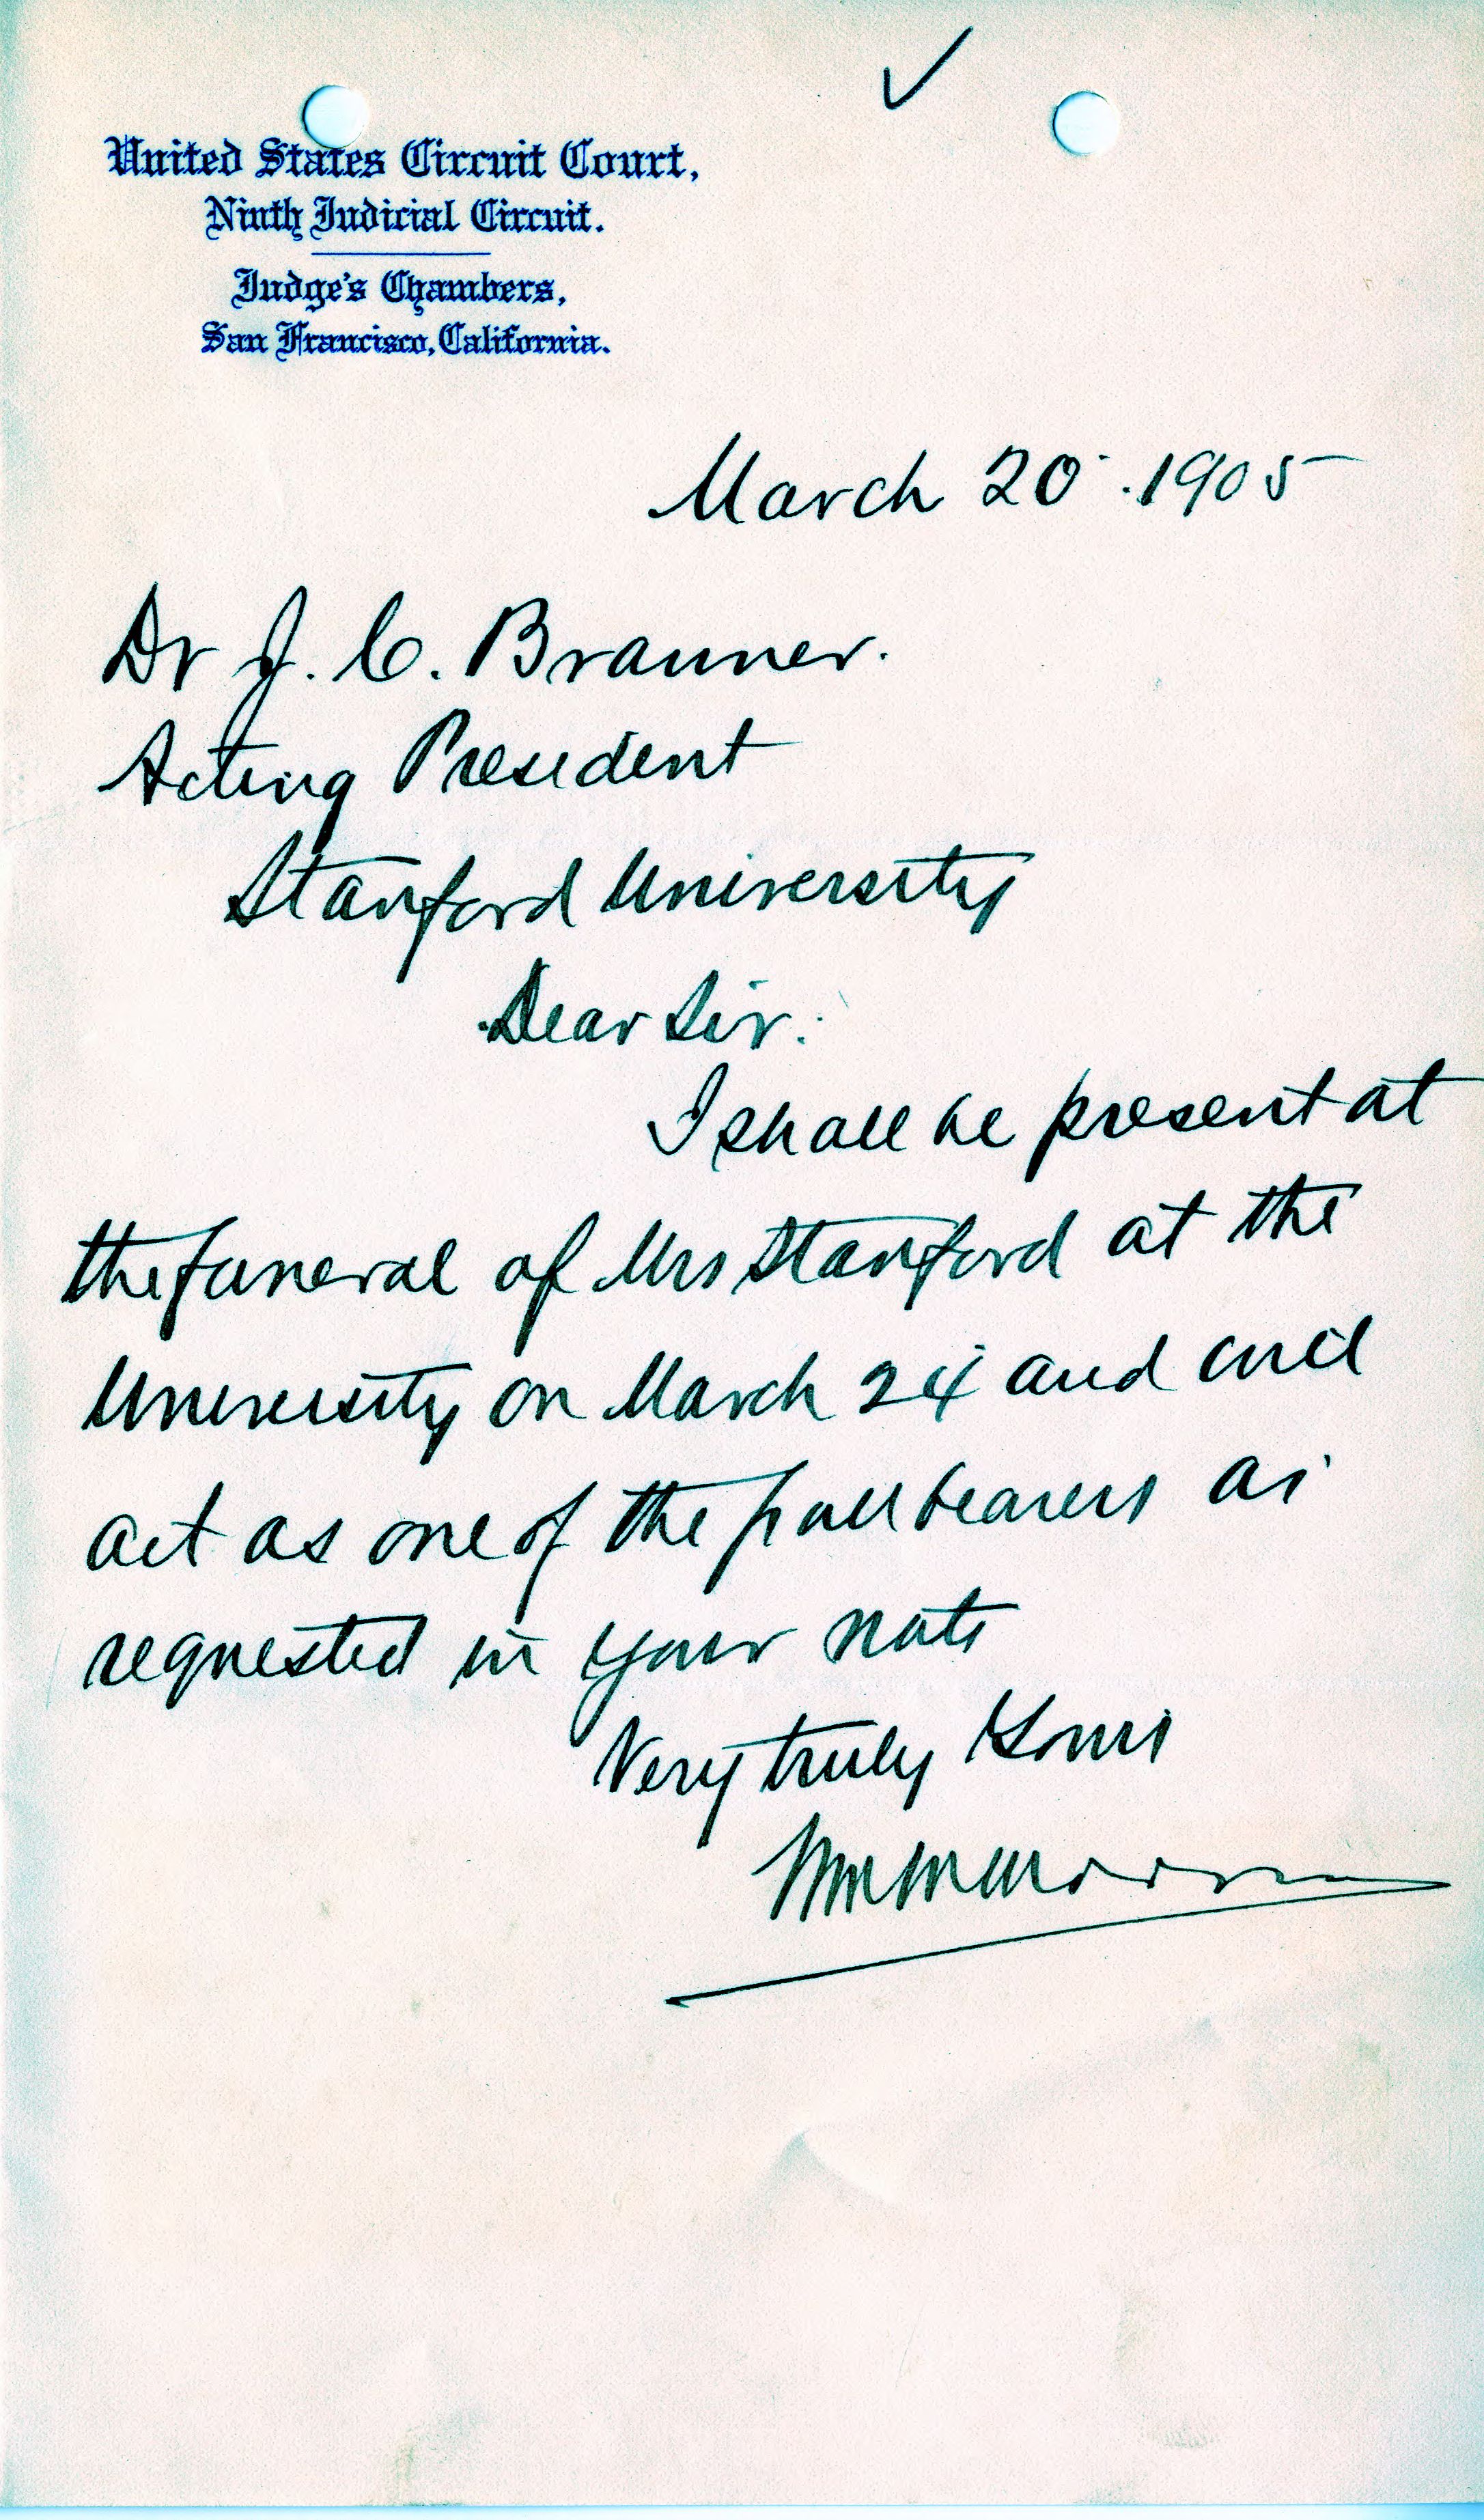 United States Circuit Court,
Ninth Judicial Circuit.
Judge's Chambers,
San Francisco, California.
March 20. 1905
Dr J. C. Branner.
Acting President
Stanford University
Dear Sir:
I shall be present at
the funeral of Mrs Stanford at the
University on March 24 and will
act as one of the pall bearers as
requested in your note
Very truly Yours
Wm W Morrow